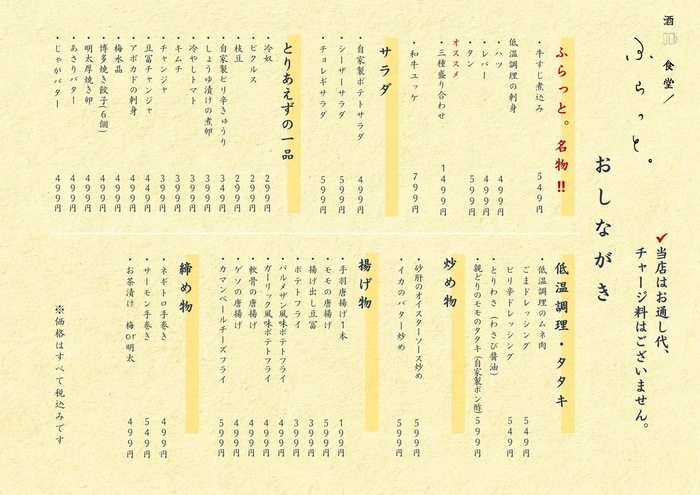 酒 食堂/
ふらっと。
✔当店はお通し代、
チャージ料はございません。
おしながき
ふらっと。名物!!
・牛すじ煮込み 549円
低温調理の刺身
・ハツ 499円
・レバー 499円
・タン 599円
オススメ
・三種盛り合わせ 1499円
・和牛ユッケ 799円
サラダ
・自家製ポテトサラダ 499円
・シーザーサラダ 599円
・チョレギサラダ 599円
とりあえずの一品
・冷奴 299円
・ピクルス 299円
・枝豆 299円
・自家製ピリ辛きゅうり 349円
・しょうゆ漬けの煮卵 399円
・冷やしトマト 399円
・キムチ 399円
・チャンジャ 399円
・豆富チャンジャ 449円
・アボカドの刺身 449円
・梅水晶 499円
・博多焼き餃子(6個) 499円
・明太厚焼き卵 499円
・あさりバター 499円
・じゃがバター 499円
低温調理・タタキ
・低温調理のムネ肉
ごまドレッシング 549円
ピリ辛ドレッシング 549円
・とりわさ(わさび醤油) 499円
・親どりのモモのタタキ(自家製ポン酢) 599円
炒め物
・砂肝のオイスターソース炒め 599円
・イカのバター炒め 599円
揚げ物
・手羽唐揚げ1本 199円
・モモの唐揚げ 599円
・揚げ出し豆富 399円
・ポテトフライ 399円
・パルメザン風味ポテトフライ 499円
・ガーリック風味ポテトフライ 499円
・軟骨の唐揚げ 499円
・ゲソの唐揚げ 499円
・カマンベールチーズフライ 599円
締め物
・ネギトロ手巻き 499円
・サーモン手巻き 549円
・お茶漬け 梅or明太 499円
※価格はすべて税込みです